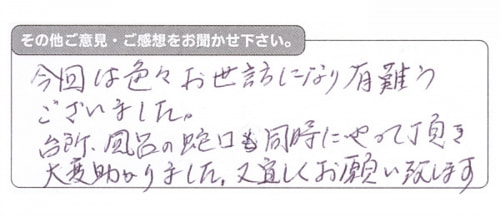 その他ご意見・ご感想をお聞かせ下さい。
今回は色々お世話になり有難う
ございました。
台所、風呂の蛇口も同時にやって頂き
大変助かりました。又宜しくお願い致します